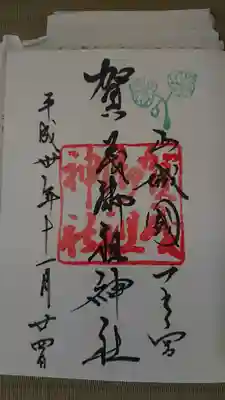 山城國一之宮
賀茂御祖神社
平成廿八年十一月廿四日
賀茂御祖神社